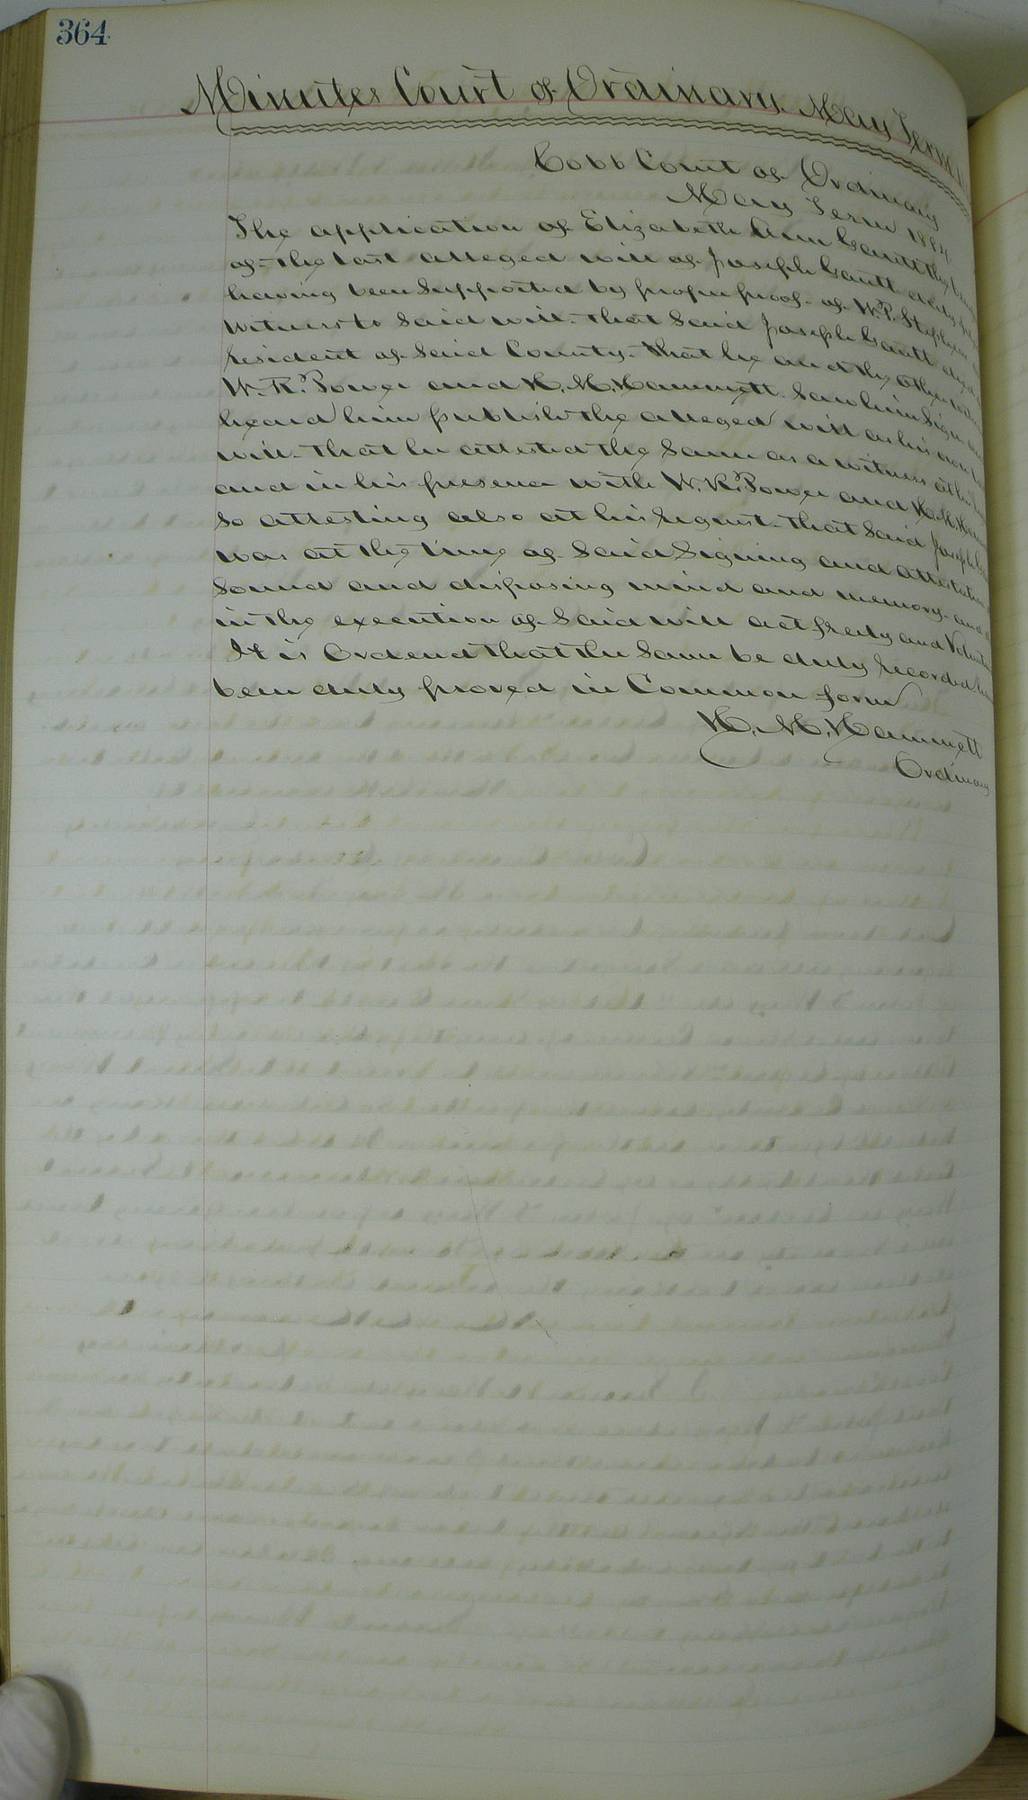 364
Minutes Court of Ordinary. May Term
Cobb Court of Ordinary
May Term 1884
The application of Elizabeth Ann Gantt the
of the last alleged will of Joseph Gantt decd
having been supported by proper proof of W. P. Stephens
witness to said will. that said Joseph Gantt died
resident of said County. that he and the other
W. R. Power and H. M. Hammett. saw him sign and
heard him publish the alleged will as his own
will. that he attested the same as a witness at his
and in his presence with W. R. Power and H. M.
so attesting also at his request. that said Joseph
was at the time of said signing and attestation
sound and disposing mind and memory. and
in the execution of said will act freely and
It is Ordered that the same be duly recorded
been duly proved in Common form
H. M. Hammett
Ordinary